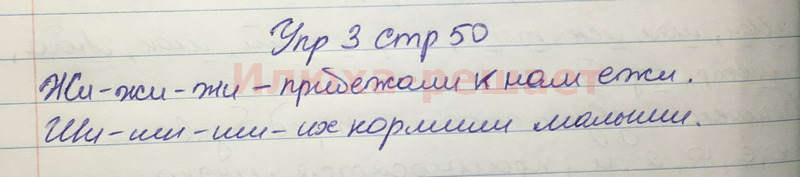 Упр 3 стр 50
Жи-жи-жи - прибежали к нам ежи.
Илюха решает
Ши-ши-ши- их кормили малыши.